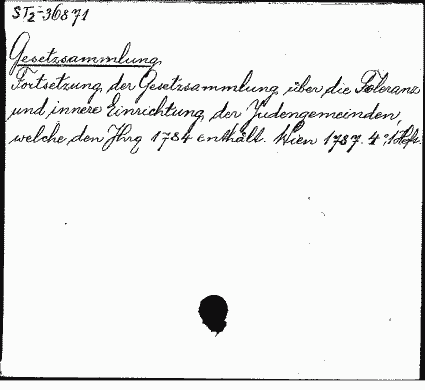 ST2-36871
Gesetzsammlung
Fortsetzung der Gesetzsammlung über die Toleranz
und innere Einrichtung der Judengemeinden,
welche den Jhrg 1784 enthält. Wien 1787. 4°, 1 Heft.